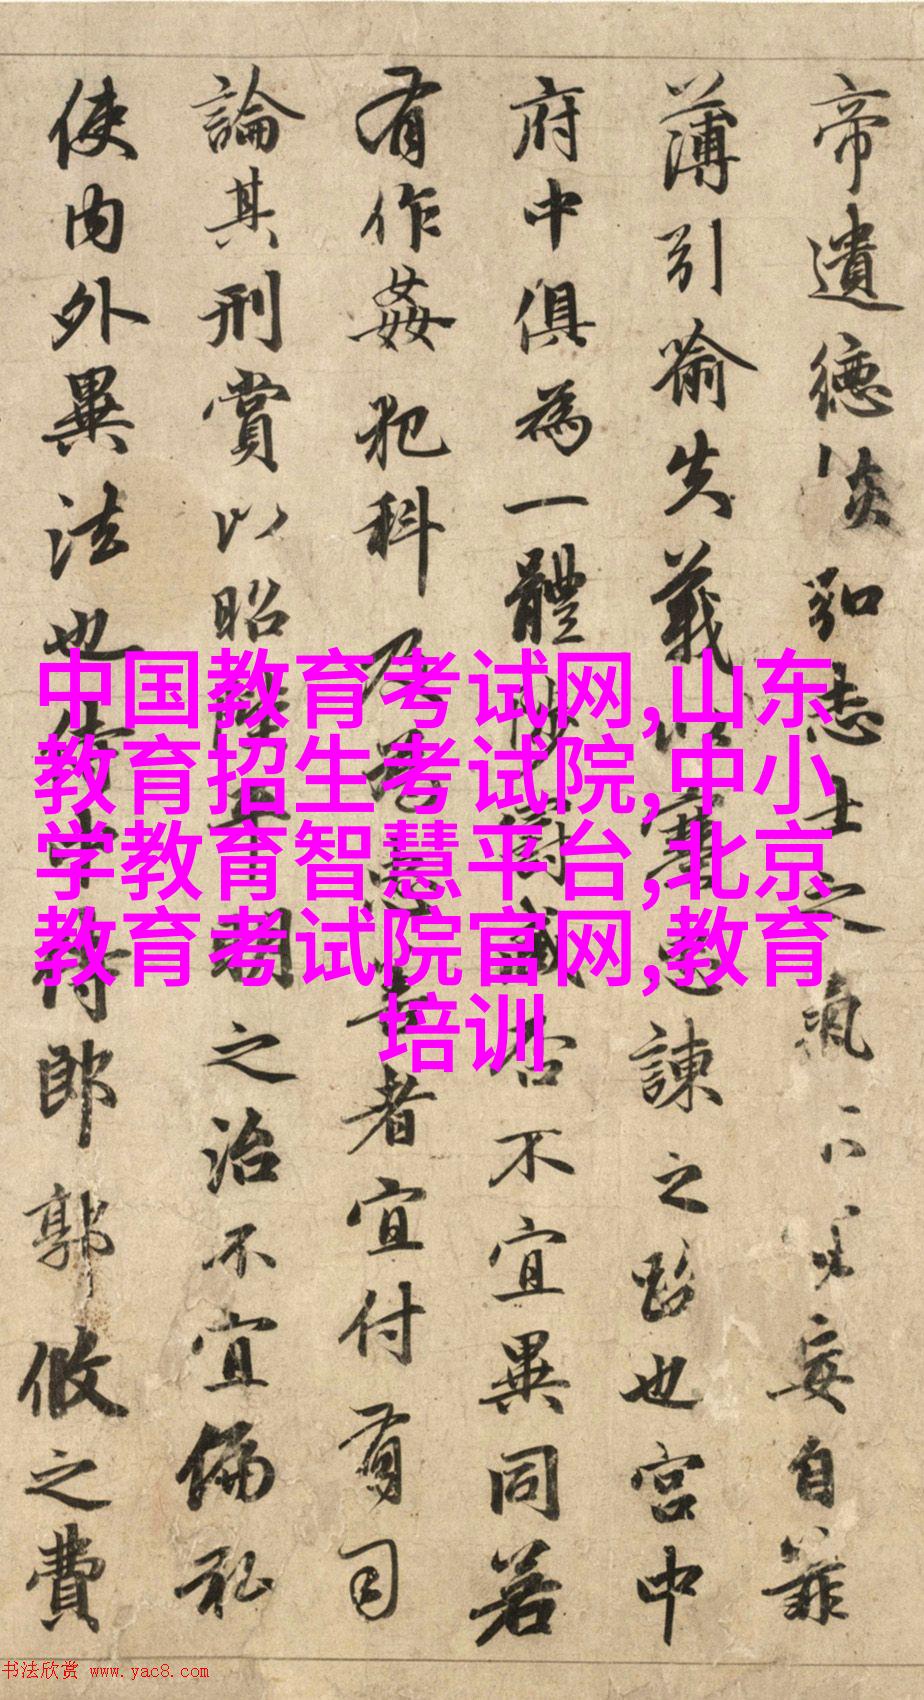 帝遺德恢弘志士之氣不宜妄自菲
薄引喻失義以塞忠諫之路也宮中
府中俱為一體陟罰臧否不宜異同若
有作姦犯科及為忠善者宜付有司
論其刑賞以昭陛下平明之治不宜偏私
使內外異法也侍中侍郎郭攸之費
中国教育考试网,山东
教育招生考试院,中小
学教育智慧平台,北京
教育考试院官网,教育
培训
书法欣赏 www.yac8.com